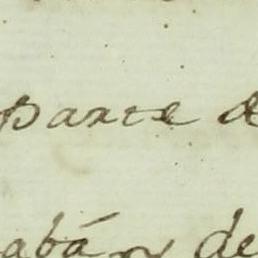 parte de
abán de